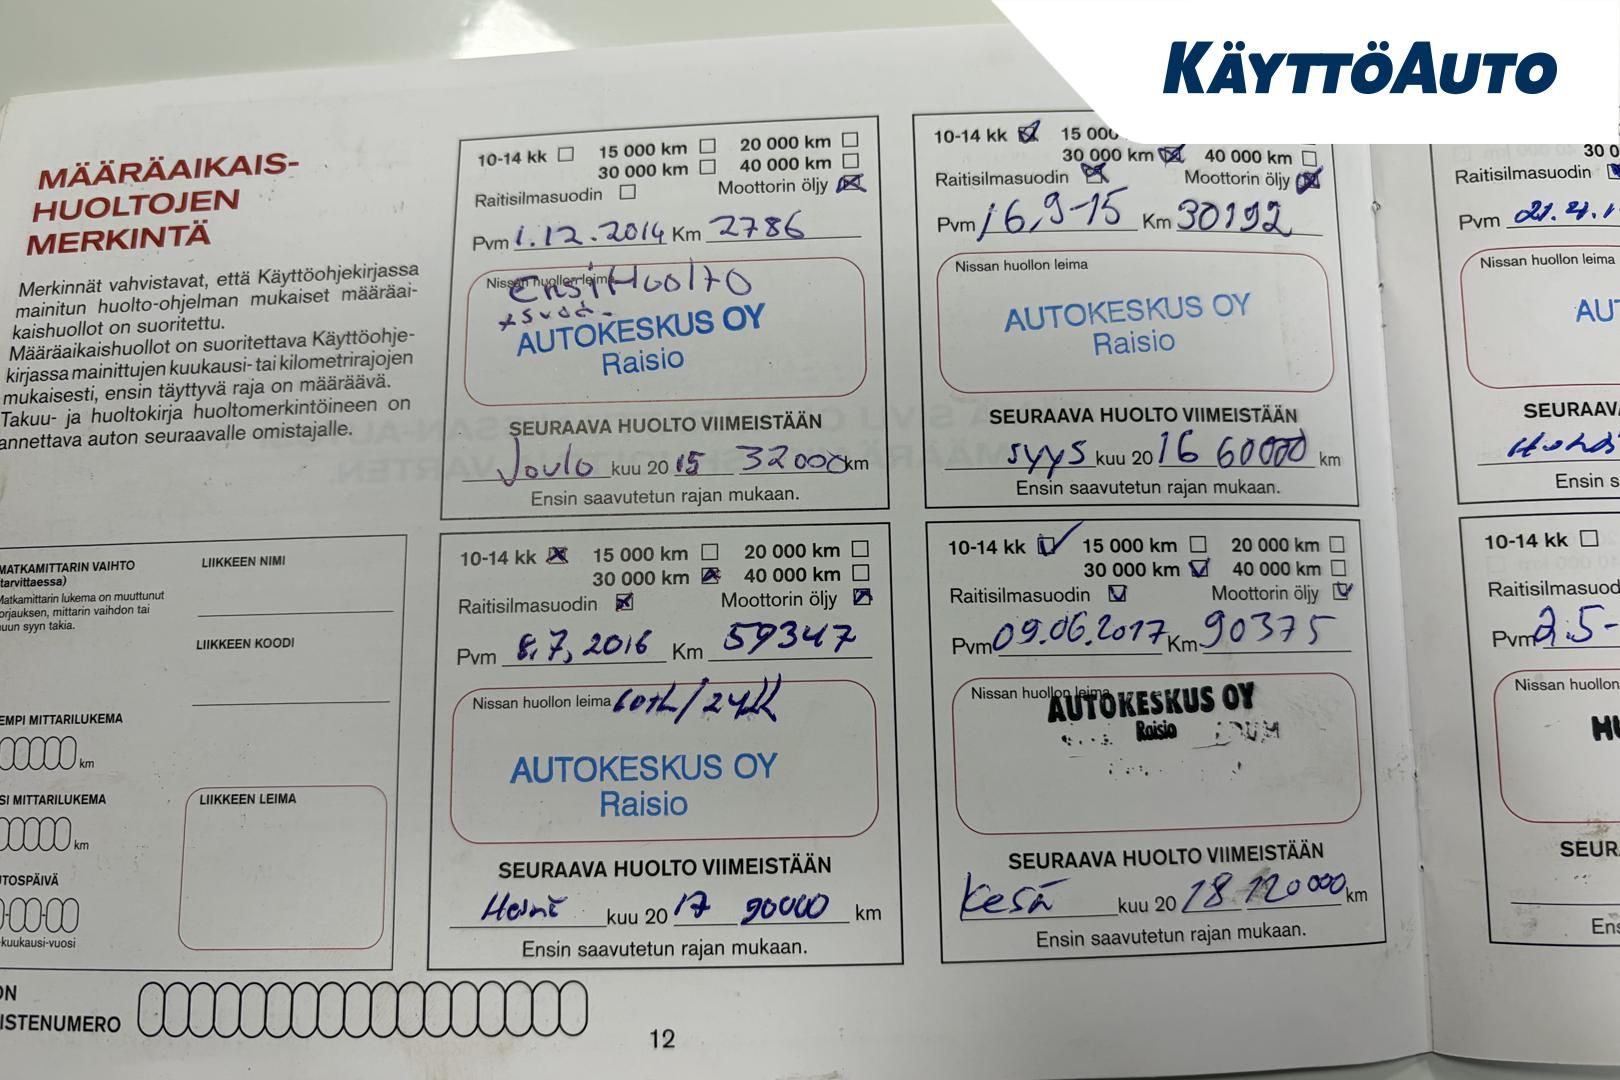 KÄYTTÖAUTO
MÄÄRÄAIKAIS-
HUOLTOJEN
MERKINTÄ
Merkinnät vahvistavat, että Käyttöohjekirjassa
mainitun huolto-ohjelman mukaiset määräai-
kaishuollot on suoritettu.
Määräaikaishuollot on suoritettava Käyttöohje-
kirjassa mainittujen kuukausi- tai kilometrirajojen
mukaisesti, ensin täyttyvä raja on määräävä.
Takuu- ja huoltokirja huoltomerkintöineen on
annettava auton seuraavalle omistajalle.
10-14 kk 15 000 km 20 000 km
30 000 km 40 000 km
Raitisilmasuodin Moottorin öljy
Pvm 1.12.2014 Km 2786
Nissan huollon leima
EnsiHuolto
AUTOKESKUS OY
Raisio
SEURAAVA HUOLTO VIIMEISTÄÄN
Joulu kuu 20 15 32000 km
Ensin saavutetun rajan mukaan.
10-14 kk 15 000
30 000 km 40 000 km
Raitisilmasuodin Moottorin öljy
Pvm 16,9-15 Km 30192
Nissan huollon leima
AUTOKESKUS OY
Raisio
SEURAAVA HUOLTO VIIMEISTÄÄN
syys kuu 20 16 60000 km
Ensin saavutetun rajan mukaan.
30 0
Raitisilmasuodin
Pvm 21.4.1
Nissan huollon leima
AU
SEURAAV
Ensin s
MATKAMITTARIN VAIHTO
(tarvittaessa)
Matkamittarin lukema on muuttunut
orjauksen, mittarin vaihdon tai
muun syyn takia.
LIIKKEEN NIMI
LIIKKEEN KOODI
EMPI MITTARILUKEMA
km
SI MITTARILUKEMA
km
UTOSPÄIVÄ
-kuukausi-vuosi
LIIKKEEN LEIMA
10-14 kk 15 000 km 20 000 km
30 000 km 40 000 km
Raitisilmasuodin Moottorin öljy
Pvm 8,7,2016 Km 59347
Nissan huollon leima 60th/24kk
AUTOKESKUS OY
Raisio
SEURAAVA HUOLTO VIIMEISTÄÄN
Heinä kuu 20 17 90000 km
Ensin saavutetun rajan mukaan.
10-14 kk 15 000 km 20 000 km
30 000 km 40 000 km
Raitisilmasuodin Moottorin öljy
Pvm 09.06.2017 Km 90375
Nissan huollon leima
AUTOKESKUS OY
Raisio
SEURAAVA HUOLTO VIIMEISTÄÄN
Kesä kuu 20 18 120000 km
Ensin saavutetun rajan mukaan.
10-14 kk
Raitisilmasuod
Pvm 2.5-
Nissan huollon
HU
SEUR
Ens
ON
ISTENUMERO
12